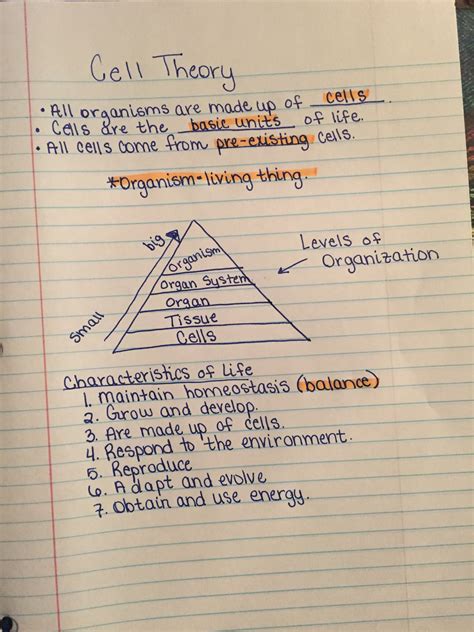 Cell Theory
• All organisms are made up of cells.
• Cells are the basic units of life.
• All cells come from pre-existing cells.
*Organism-living thing.
big
Small
Organism
Organ System
Organ
Tissue
Cells
Levels of
Organization
Characteristics of Life
1. Maintain homeostasis (balance)
2. Grow and develop.
3. Are made up of cells.
4. Respond to the environment.
5. Reproduce
6. Adapt and evolve
7. Obtain and use energy.